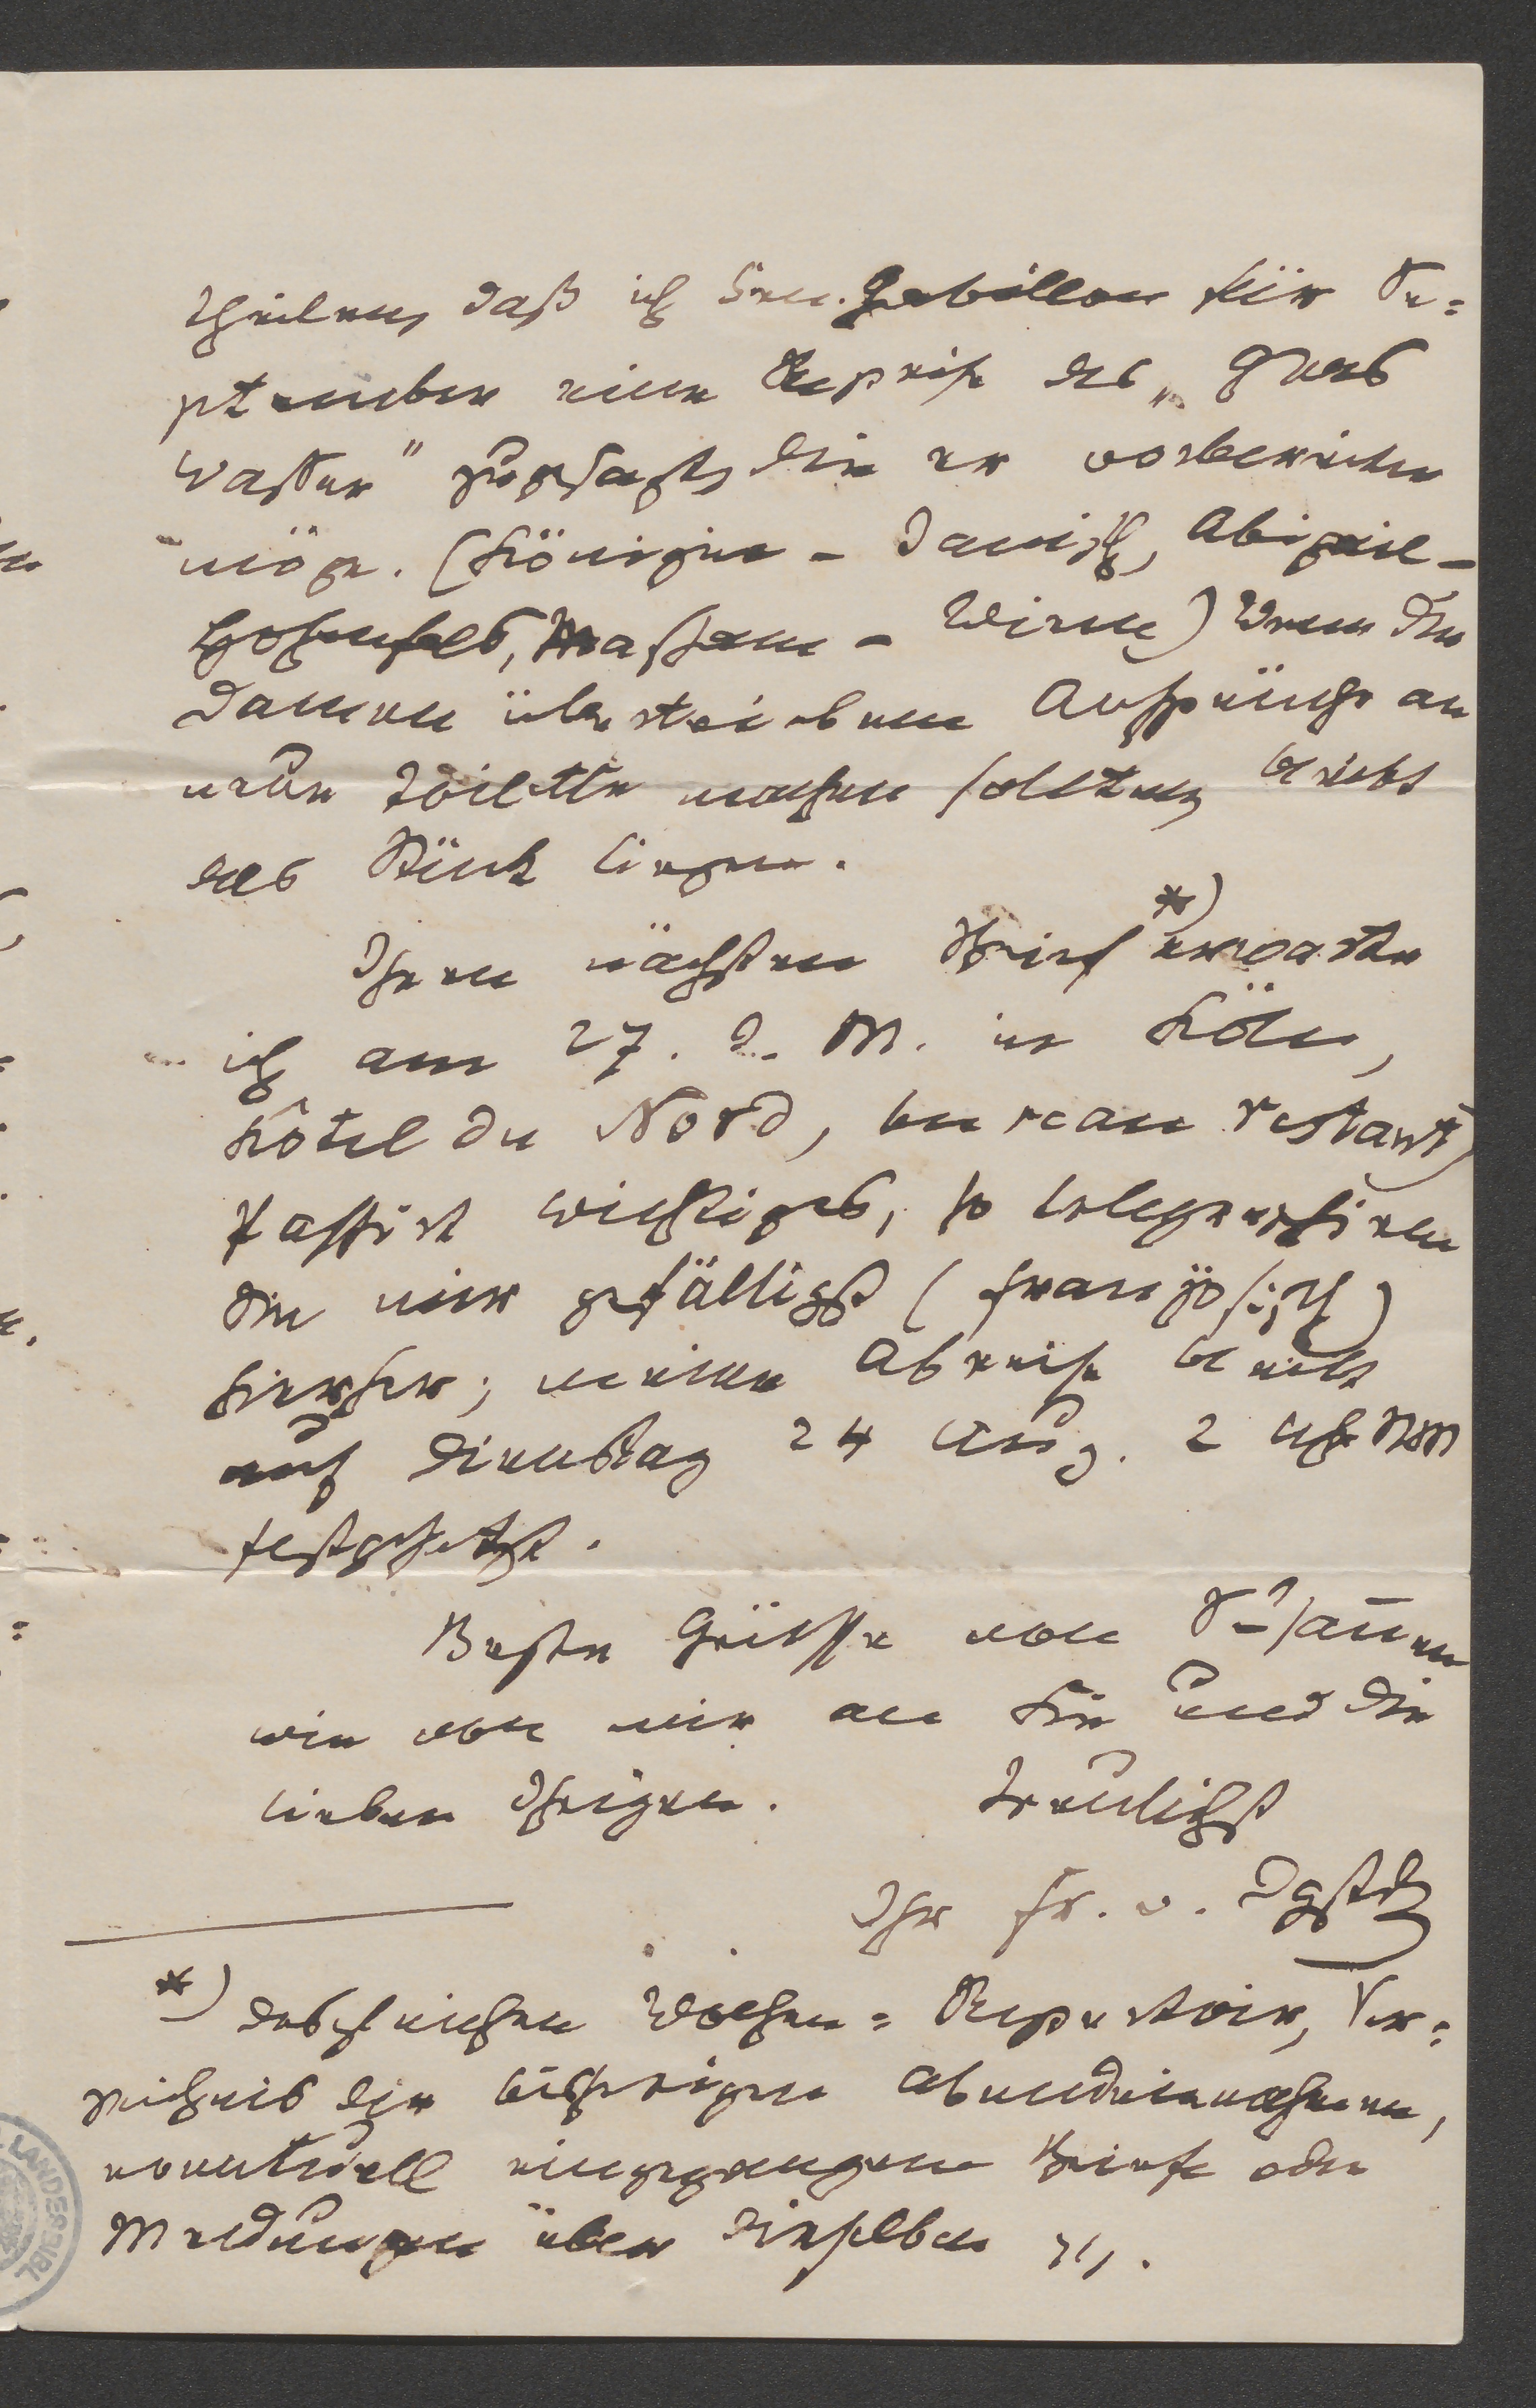 theilen, daß ich Hrn. Gabillon für Se=
ptember eine Reprise des „Glas
Wasser" zugesagt, die er vorbereiten
möge. (Königin – Janisch, Abigail –
Hohenfels, Masham – Wien) Wenn die
Damen übertriebene Ansprüche an
neue Toilette machen sollten, bleibt
das Stück liegen.
Ihren nächsten Brief *) erwarte
ich am 27. d. M. in Köln,
Hôtel du Nord, bureau restant,
Passirt wichtiges, so telegraphiren
Sie mir gefälligst (französisch)
hierher; meine Abreise bleibt
auf Dienstag 24 Aug. 2 Uhr NM
festgesetzt.
Beste Grüsse von Susannen
wie von mir an Sie und die
lieben Ihrigen. Treulichst
Ihr Fr. v. Dgstdt
*) desgleichen Wochen=Repertoir, Ver=
zeichnis der bisherigen Abendeinnahmen,
eventuell eingegangene Briefe oder
Meldungen über dieselben etc.
LANDESBIBL